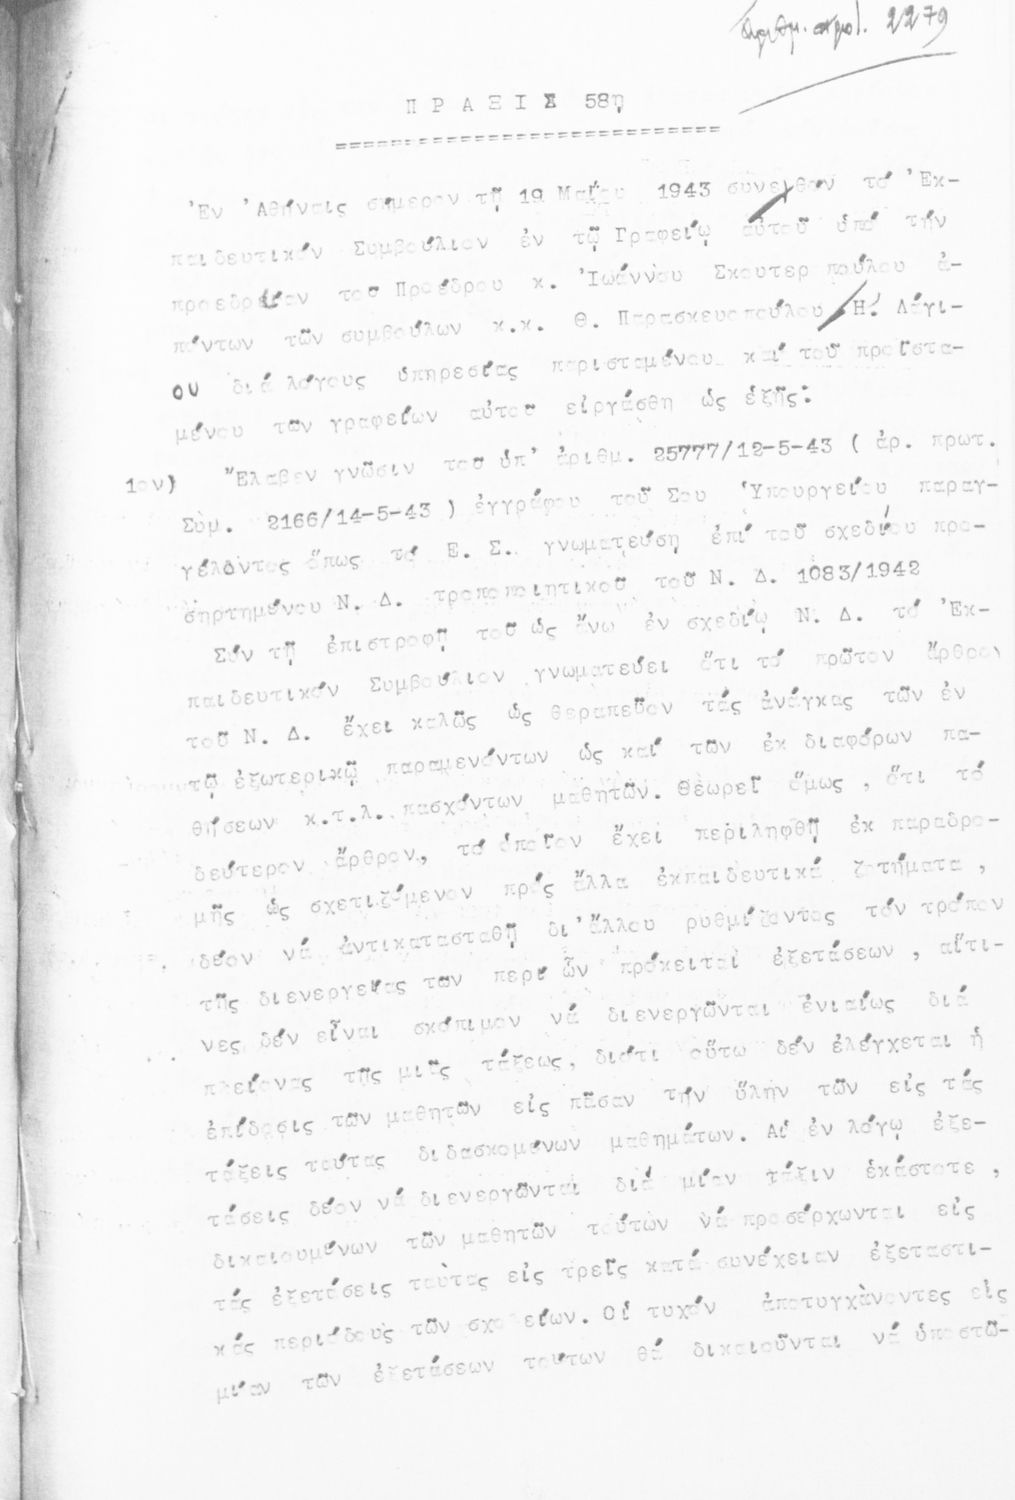 Ἀριθμ. πρωτ. 2279
Π Ρ Α Ξ Ι Σ 58η
Ἐν Ἀθήναις σήμερον τῇ 19 Μαΐου 1943 συνελθόν τό Ἐκ-
παιδευτικόν Συμβούλιον ἐν τῷ Γραφείῳ αὐτοῦ ὑπό τήν
προεδρείαν τοῦ Προέδρου κ. Ἰωάννου Σκουτερ πούλου ἀ-
πόντων τῶν συμβούλων κ.κ. Θ. Παρασκευοπούλου Η. Λάγι-
ου διά λόγους ὑπηρεσίας παρισταμένου καί τοῦ προϊστα-
μένου τῶν γραφείων αὐτοῦ εἰργάσθη ὡς ἑξῆς:
1ον) Ἔλαβεν γνῶσιν τοῦ ὑπ' ἀριθμ. 25777/12-5-43 ( ἀρ. πρωτ.
Σύμ. 2166/14-5-43 ) ἐγγράφου τοῦ Σου Ὑπουργείου παραγ-
γέλοντος ὅπως τό Ε. Σ. γνωματεύση ἐπί τοῦ σχεδίου προ-
σηρτημένου Ν. Δ. τροποποιητικοῦ τοῦ Ν. Δ. 1083/1942
Σύν τῇ ἐπιστροφῇ τοῦ ὡς ἄνω ἐν σχεδίῳ Ν. Δ. τό Ἐκ-
παιδευτικόν Συμβούλιον γνωματεύει ὅτι τό πρῶτον ἄρθρον
τοῦ Ν. Δ. ἔχει καλῶς ὡς θεραπεῦον τάς ἀνάγκας τῶν ἐν
τῷ ἐξωτερικῷ παραμενόντων ὡς καί τῶν ἐκ διαφόρων πα-
θήσεων κ.τ.λ. πασχόντων μαθητῶν. Θεωρεῖ ὅμως , ὅτι τό
δεύτερον ἄρθρον, τό ὁποῖον ἔχει περιληφθῆ ἐκ παραδρο-
μῆς ὡς σχετιζόμενον πρός ἄλλα ἐκπαιδευτικά ζητήματα ,
δέον νά ἀντικατασταθῆ δι' ἄλλου ρυθμίζοντος τόν τρόπον
τῆς διενεργείας τῶν περί ὧν πρόκειται ἐξετάσεων , αἵτι-
νες δέν εἶναι σκόπιμον νά διενεργῶνται ἑνιαίως διά
πλείονας τῆς μιᾶς τάξεως, διότι οὕτω δέν ἐλέγχεται ἡ
ἐπίδοσις τῶν μαθητῶν εἰς πᾶσαν τήν ὕλην τῶν εἰς τάς
τάξεις ταύτας διδασκομένων μαθημάτων. Αἱ ἐν λόγῳ ἐξε-
τάσεις δέον νά διενεργῶνται διά μίαν τάξιν ἑκάστοτε ,
δικαιουμένων τῶν μαθητῶν τούτων νά προσέρχωνται εἰς
τάς ἐξετάσεις ταύτας εἰς τρεῖς κατά συνέχειαν ἐξεταστι-
κάς περιόδους τῶν σχολείων. Οἱ τυχόν ἀποτυγχάνοντες εἰς
μίαν τῶν ἐξετάσεων τούτων θά δικαιοῦνται νά ὑποστῶ-